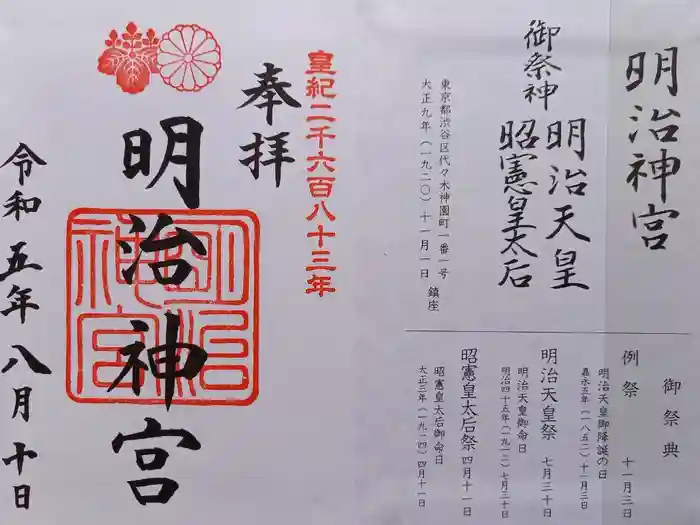 明治神宮
御祭神
明治天皇
昭憲皇太后
東京都渋谷区代々木神園町一番一号
大正九年(一九二〇)十一月一日 鎮座
御祭典
例祭 十一月三日
明治天皇御降誕の日
嘉永五年(一八五二)十一月三日
明治天皇祭 七月三十日
明治天皇御命日
明治四十五年(一九一二)七月三十日
昭憲皇太后祭 四月十一日
昭憲皇太后御命日
大正三年(一九一四)四月十一日
皇紀二千六百八十三年
奉拝
明治神宮
明治神宮
令和五年八月十日